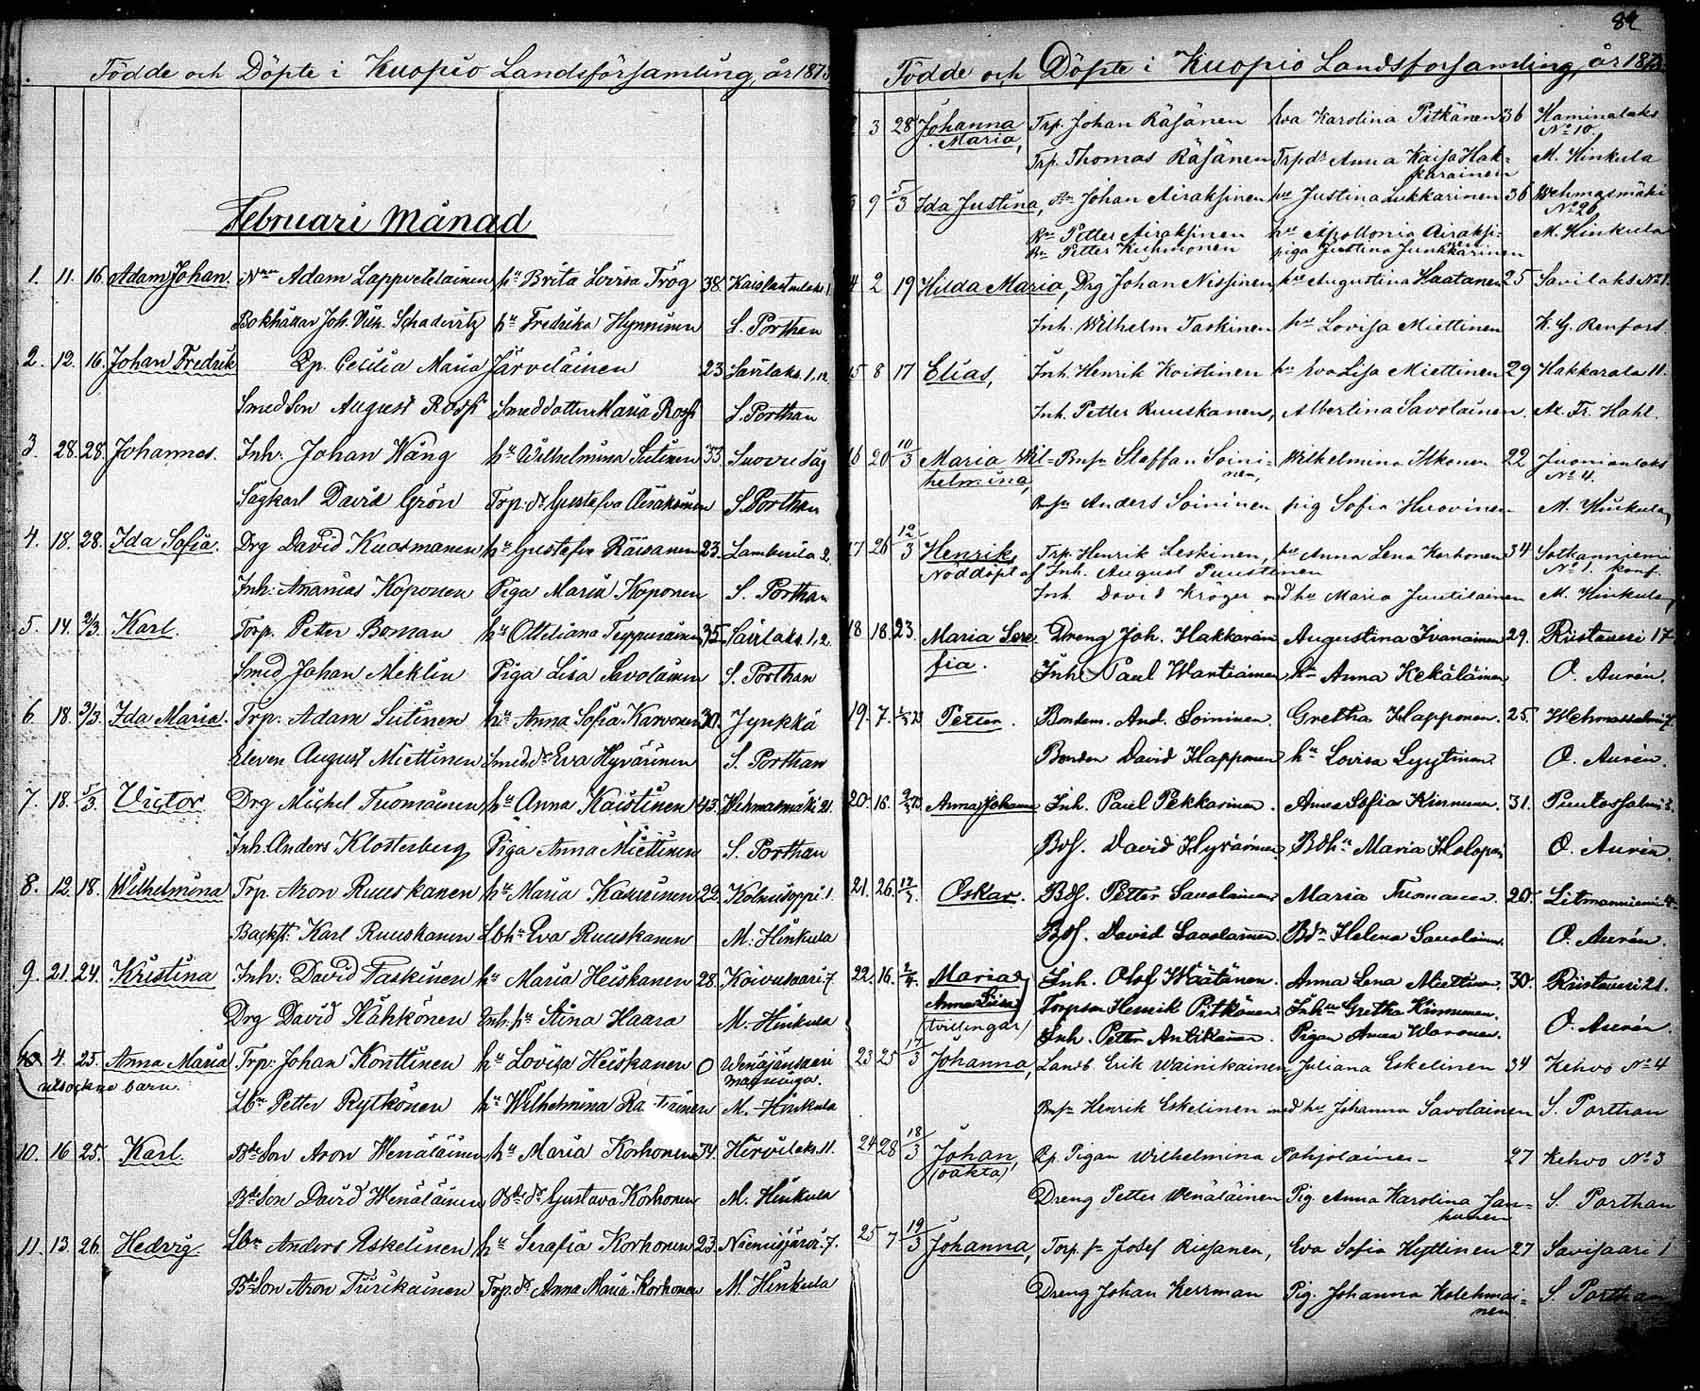 Födde och Döpte i Kuopio Landsförsamling, år 1873
Februari Månad
1. 11. 16. Adam Johan. Adam Lappvetelainen hu Brita Lovisa Trög 38.
Bokhållar Joh. Vilh. hu Fredrika Hynninen S. Porthan
2. 12. 16. Johan Fredrik Qp. Cecilia Maria Järveläinen 23 Savilaks. 1,
Smed Son August Rossi Smeddotter Maria Rossi S. Porthan
3. 28. 28. Johannes. Inh: Johan Wäng hu Wilhelmina Sutinen 33 Suovu såg
Sågkarl David Grön Trp: dr Gusta Eva Airaksinen S. Porthan
4. 18. 28. Ida Sofia. Drg David Kuosmanen hu Gusta Eva Räisänen 23. 2.
Inh: Ananias Koponen Piga Maria Koponen S. Porthan
5. 14. 2/3. Karl. Torp. Petter Boman hu Otteliana 35. Savilaks. 1,2.
Smed Johan Meklin Piga Lisa Savolainen S. Porthan
6. 18. 2/3. Ida Maria. Trp. Adam Sutinen hu Anna Sofia Karvonen 30. Jynkkä
Eleven August Miettinen Smed. dr Eva Hyvärinen S. Porthan
7. 18. 5/3. Victor Drg Michel Tuomainen hu Anna Kaistinen 43. Wehmasmäki 21.
Inh. Anders Klosterberg Piga Anna Miettinen S. Porthan
8. 12. 18. Wilhelmina Trp. Aron Ruuskanen hu Maria 22. Kolmisoppi. 1
Backst: Karl Ruuskanen Lbhu Eva Ruuskanen M. Hinkula
9. 21. 24. Kristina Inh: David Taskinen hu Maria Heiskanen 28. Koivusaari. 7.
Drg David Kähkönen Inh. hu Stina Haara M. Hinkula
10 4. 25. Anna Maria Trp: Johan Konttinen hu Lovisa Heiskanen 0
utsockne barn. Lbn Petter Rytkönen hu Wilhelmina M. Hinkula
10. 16 25. Karl. Bde Son Aron Wenäläinen hu Maria Korhonen 34. Hirvilaks. 11.
Bde Son David Wenäläinen Bde dr Gustava Korhonen M. Hinkula
11. 13. 26. Hedvig. Lbn Anders Eskelinen hu Serafia Korhonen 23. Niemisjärvi. 7.
Bde Son Aron Tirikainen Trp. dr Anna Maria Korhonen M. Hinkula
84
Födde och Döpte i Kuopio Landsforsamling, år 1873
3 28 Johanna Maria, Trp. Johan Räsänen Eva Karolina Pitkänen 36 Haminalaks No 10.
Trp. Thomas Räsänen Trpdr Anna Kaisa Hakkarainen M. Hinkula
9 5/3 Ida Justina, Johan Airaksinen hu Justina Lukkarinen 36 Wehmasmäki No 26
Bn Petter Airaksinen hu Apollonia Airaksi- M. Hinkula
Bn Petter Kuhmonen piga Justina Junkkarinen
4 2 19 Hilda Maria, Drg Johan Nissinen, hu Augustina Haatanen 25 Savilaks No 1.
Inh. Wilhelm Taskinen hu Lovisa Miettinen K. G. Renfors
15 8 17 Elias, Inh. Henrik Koistinen hu Eva Lisa Miettinen 29 Hakkarala 11.
Inh. Petter Ruuskanen, Albertina Savolainen. Fr. Hahl.
16 20 10/3 Maria Wilhelmina, Bnsn Staffan Soininen, Wilhelmina Iskonen 22
Bnsn Anders Soininen pig Sofia Huovinen M. Hinkula
17 26 12/3 Henrik, Trp. Henrik Leskinen, hu Anna Lena Korhonen 34 Sotkanniemi No 1. konf.
Nöddöpt af Inh. August Puustinen
Inh. David Kröger med hu Maria Juutilainen M. Hinkula
18 18. 23. Maria Serefia. Dreng Joh. Hakkarain Augustina Ivanainen 29. Riistavesi 17
Inh. Paul Wartiainen hu Anna Kekäläinen O. Aurén.
19. 7. Petter. Bondem. And. Soininen. Gretha Happonen. 25.
Bonden David Happonen hu Lovisa Lyytinen O. Aurén.
20. 16. Anna Johanna Inh. Paul Pekkarinen. Anna Sofia Kinnunen. 31. Puutossalmi 2.
Bdf. David Hyvärinen Bdhu Maria Holopai O. Aurén.
21. 26. Oskar. Bdf. Petter Savolainen Maria Tuomainen 20. Litmanniemi 4.
Bdf. David Savolainen. Bdn Helena Savolainen. O. Aurén.
22. 16. 2/4. Maria & Anna Lisa (tvillingar) Inh. Olof Wäätänen. Anna Lena Miettinen. 30. Riistavesi 21.
Torpson Henrik Pitkänen Inhu Gretha Kinnunen.
Inh. Petter Antikainen. Pigan Anna Waronen. O. Aurén.
23 25 17/3 Johanna, Landb. Erik Wainikainen Juliana Eskelinen 34 Kehvo No 4
Bnsn Henrik Eskelinen med hu Johanna Savolainen S. Porthan
24 28 18/3 Johan, (oäkta) Qp. Pigan Wilhelmina Pohjolainen 27 Kehvo No 3
Dreng Petter Wenäläinen Pig. Anna Karolina Janhunen S. Porthan
25 7 19/3 Johanna, Torp. sn Josef Rissanen, Eva Sofia Hyttinen 27 Savisaari 1
Dreng Johan Herrman Pig. Johanna Kolehmainen S. Porthan